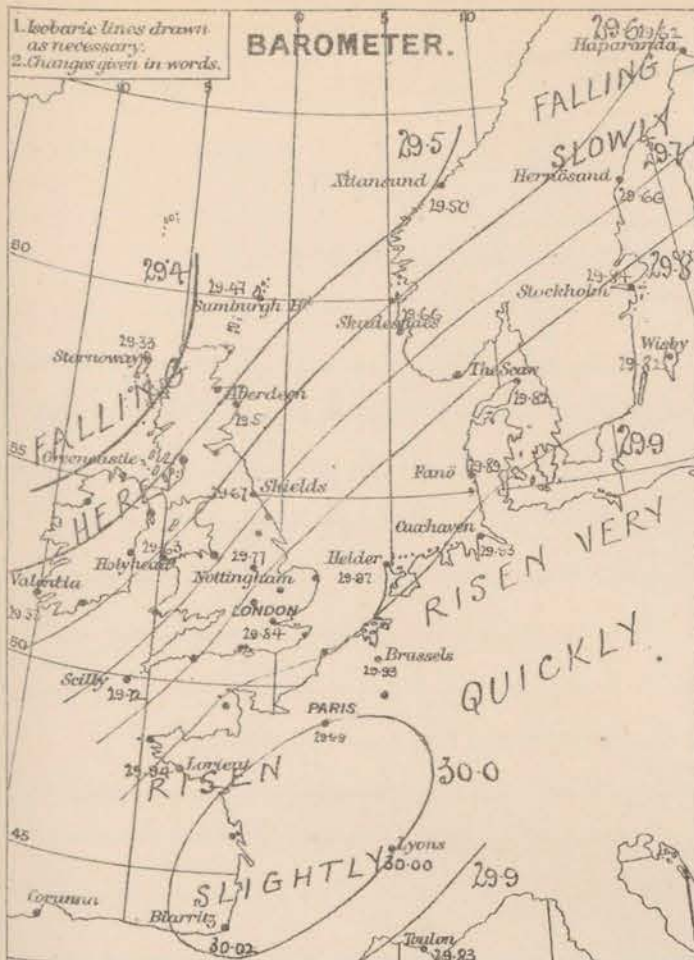 1. Isobaric lines drawn
as necessary.
2. Changes given in words.
BAROMETER.
10
5
0
5
10
29.62
Haparanda
FALLING
SLOWLY
29.5
29.7
Xtiansund
29.50
Hernösand
29.66
60
29.4
29.47
Sumburgh Hd
Skudesnaes
29.66
29.84
Stockholm
29.8
29.33
Stornoway
Wisby
29.82
The Scaw
29.82
Aberdeen
29.5
FALLING
HERE
29.9
55
Greencastle
Shields
29.67
Fanö
29.89
Cuxhaven
29.93
RISEN VERY
QUICKLY
Holyhead
29.63
29.77
Nottingham
Helder
29.87
Valentia
LONDON
29.84
50
Brussels
29.93
Scilly
29.72
PARIS
29.99
Lorient
29.94
RISEN
SLIGHTLY
30.0
45
Lyons
30.00
29.9
Corunna
Biarritz
30.02
Toulon
29.83